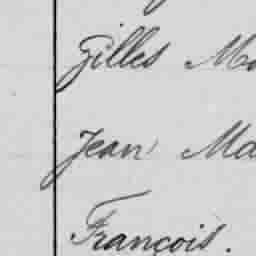 Gilles Ma
Jean Ma
François.